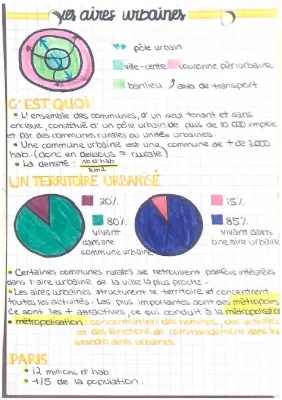 Les aires urbaines
pôle urbain
ville-centre couronne périurbaine
banlieu axes de transport
C'EST QUOI
• L'ensemble des communes, d'un seul tenant et sans
enclave, constitué d'un pôle urbain de plus de 10 000 emplois
et par des communes rurales ou unités urbaines.
• Une commune urbaine est une commune de + de 2000
hab. (donc en dessous = rurale)
• la densité : nb d'hab
km2
UN TERRITOIRE URBANISÉ
20% 15%
80% 85%
vivant vivant dans
dans une une aire urbaine
commune urbaine
• Certaines communes rurales se retrouvent parfois intégrées
dans l'aire urbaine de la ville la plus proche.
• Les aires urbaines structurent le territoire et concentrent
toutes les activités. Les plus importantes sont des métropoles
Ce sont les + attractives, ce qui conduit à la métropolisation
• métropolisation: concentration des hommes, des activités
et des fonctions de commandement dans les
grandes aires urbaines.
PARIS
• 12 millions d'hab
• 1/5 de la population.